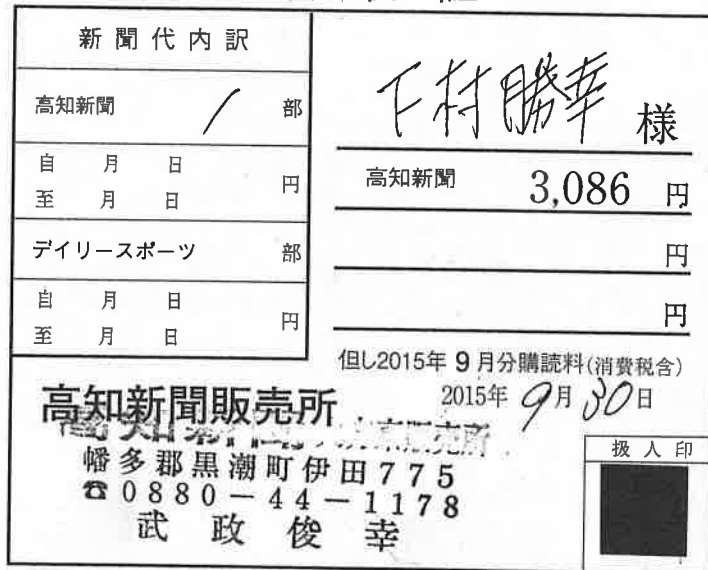 新聞代内訳
高知新聞 / 部
自 月 日
至 月 日
円
デイリースポーツ 部
自 月 日
至 月 日
円
下村勝幸 様
高知新聞 3,086 円
円
円
但し2015年 9 月分購読料(消費税含)
2015年 9月 30日
高知新聞販売所
幡多郡黒潮町伊田775
☎0880-44-1178
武政俊幸
扱人印